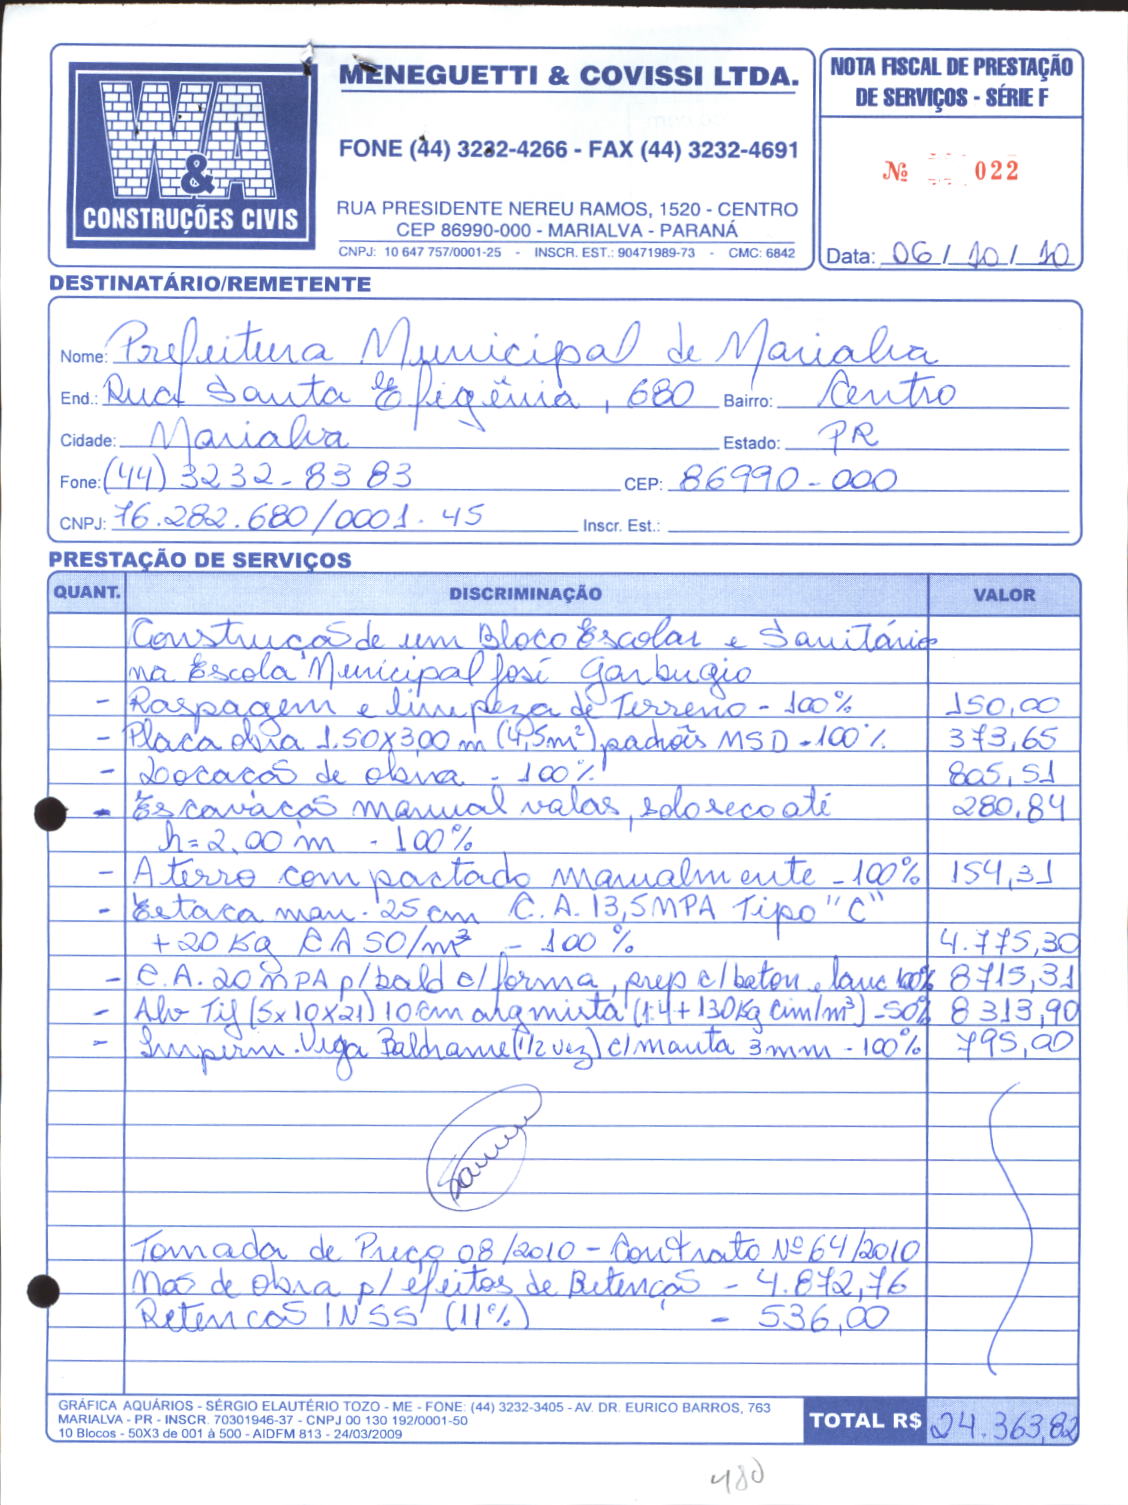 W&A
CONSTRUÇÕES CIVIS
MENEGUETTI & COVISSI LTDA.
FONE (44) 3232-4266 - FAX (44) 3232-4691
RUA PRESIDENTE NEREU RAMOS, 1520 - CENTRO
CEP 86990-000 - MARIALVA - PARANÁ
CNPJ: 10 647 757/0001-25 - INSCR. EST.: 90471989-73 - CMC: 6842
NOTA FISCAL DE PRESTAÇÃO
DE SERVIÇOS - SÉRIE F
Nº 022
Data: 06/10/10
DESTINATÁRIO/REMETENTE
Nome: Prefeitura Municipal de Marialva
End.: Rua Santa Efigênia, 680 Bairro: Centro
Cidade: Marialva Estado: PR
Fone: (44) 3232-8383 CEP: 86990-000
CNPJ: 76.282.680/0001-45 Inscr. Est.:
PRESTAÇÃO DE SERVIÇOS
QUANT. DISCRIMINAÇÃO VALOR
Construção de um Bloco Escolar e Sanitário
na Escola Municipal José Garbugio
- Raspagem e limpeza de Terreno - 100% 150,00
- Placa obra 1.50x3,00 m (4,5m²) padrões MSD - 100% 373,65
- Locação de obra - 100% 805,51
- Escavação manual valas, solo seco até 280,84
h=2,00 m - 100%
- Aterro compactado manualmente - 100% 154,31
- Estaca man. 25cm C.A. 13,5MPA Tipo "C"
+ 20 Kg CA50/m³ - 100% 4.775,30
- C.A. 20 MPA p/bald c/forma, prep c/beton e lanc 100% 8715,31
- Alv Tij (5x10x21) 10cm arg mista (1:4+130Kg cim/m³) - 50% 8313,90
- Imperm. Viga Baldrame (1/2 vez) c/manta 3mm - 100% 795,00
Tomada de Preço 08/2010 - Contrato Nº 64/2010
Mão de obra p/ efeitos de Retenção - 4.872,76
Retenção INSS (11%) - 536,00
GRÁFICA AQUÁRIOS - SÉRGIO ELAUTÉRIO TOZO - ME - FONE: (44) 3232-3405 - AV. DR. EURICO BARROS, 763
MARIALVA - PR - INSCR. 70301946-37 - CNPJ 00 130 192/0001-50
10 Blocos - 50X3 de 001 à 500 - AIDFM 813 - 24/03/2009
TOTAL R$ 24.363,82
480